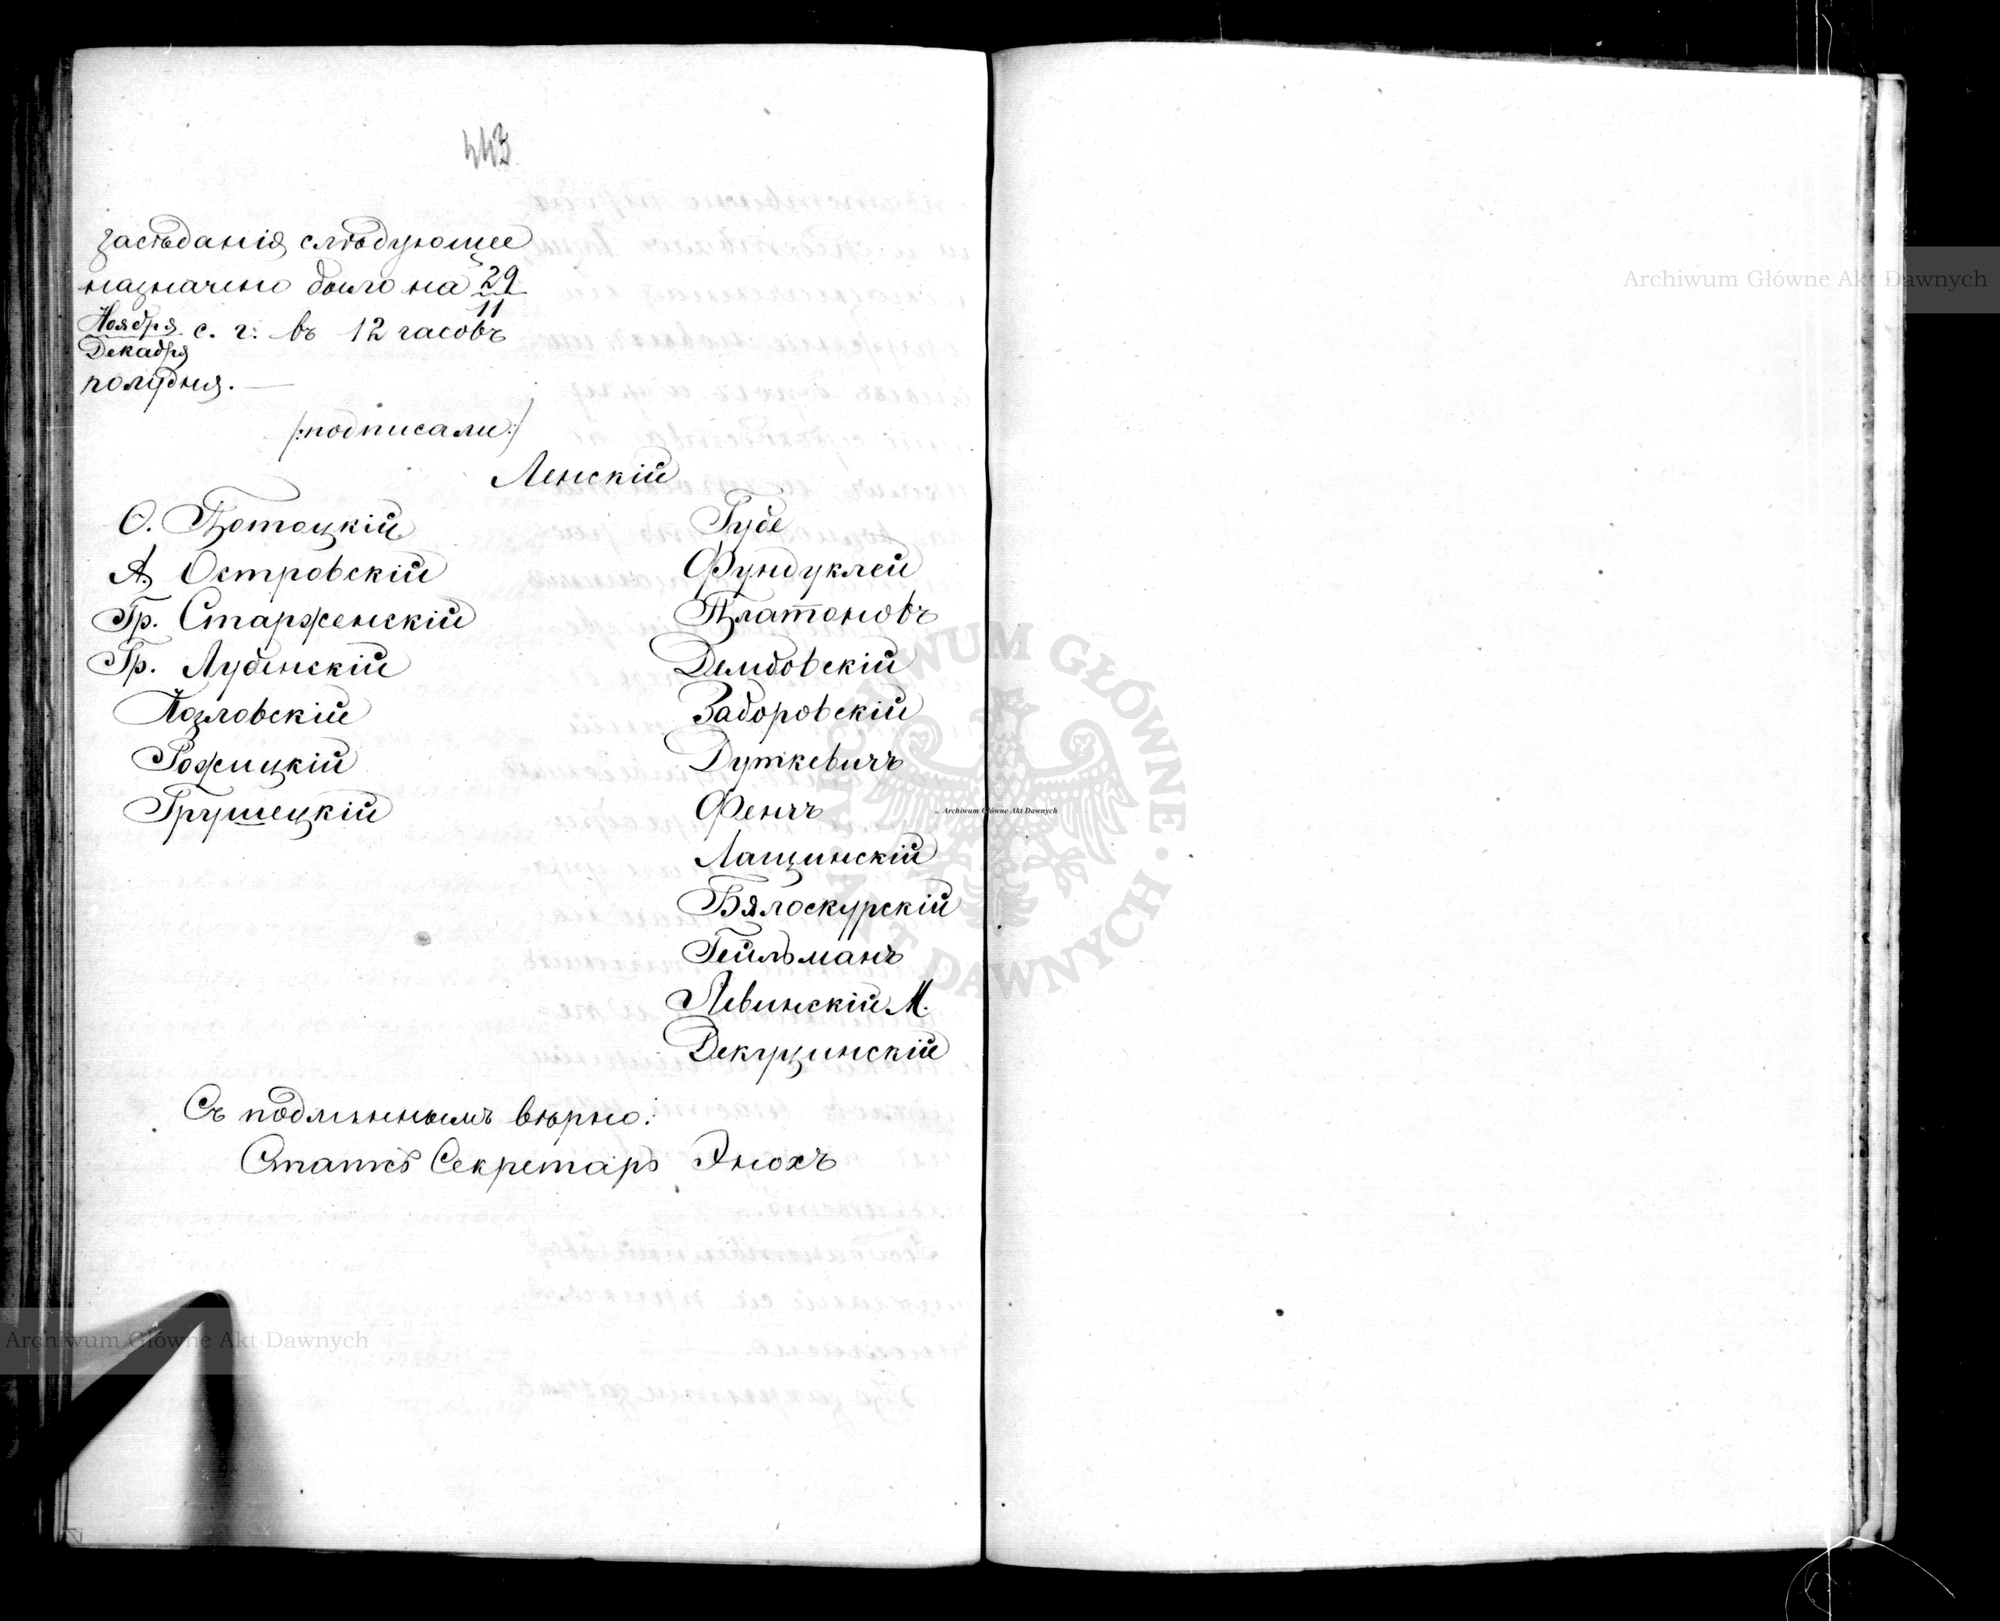 443
засѣданія слѣдующее
назначено было на 29/11
Ноября/Декабря с. г. въ 12 часовъ
полудня. —
/:подписали:/
Ленскій
Ѳ. Потоцкій
Губе
А. Островскій
Фундуклей
Гр. Старженскій
Платоновъ
Гр. Лубенскій
Дембовскій
Козловскій
Заборовскій
Рожицкій
Дуткевичъ
Грушецкій
Фенчъ
Лащинскій
Бялоскурскій
Гейльманъ
Левинскій М.
Декуцинскій
Съ подлиннымъ вѣрно:
Статсъ Секретарь Энохъ
Archiwum Główne Akt Dawnych
Archiwum Główne Akt Dawnych
Archiwum Główne Akt Dawnych
ARCHIWUM GŁÓWNE · AKT DAWNYCH ·